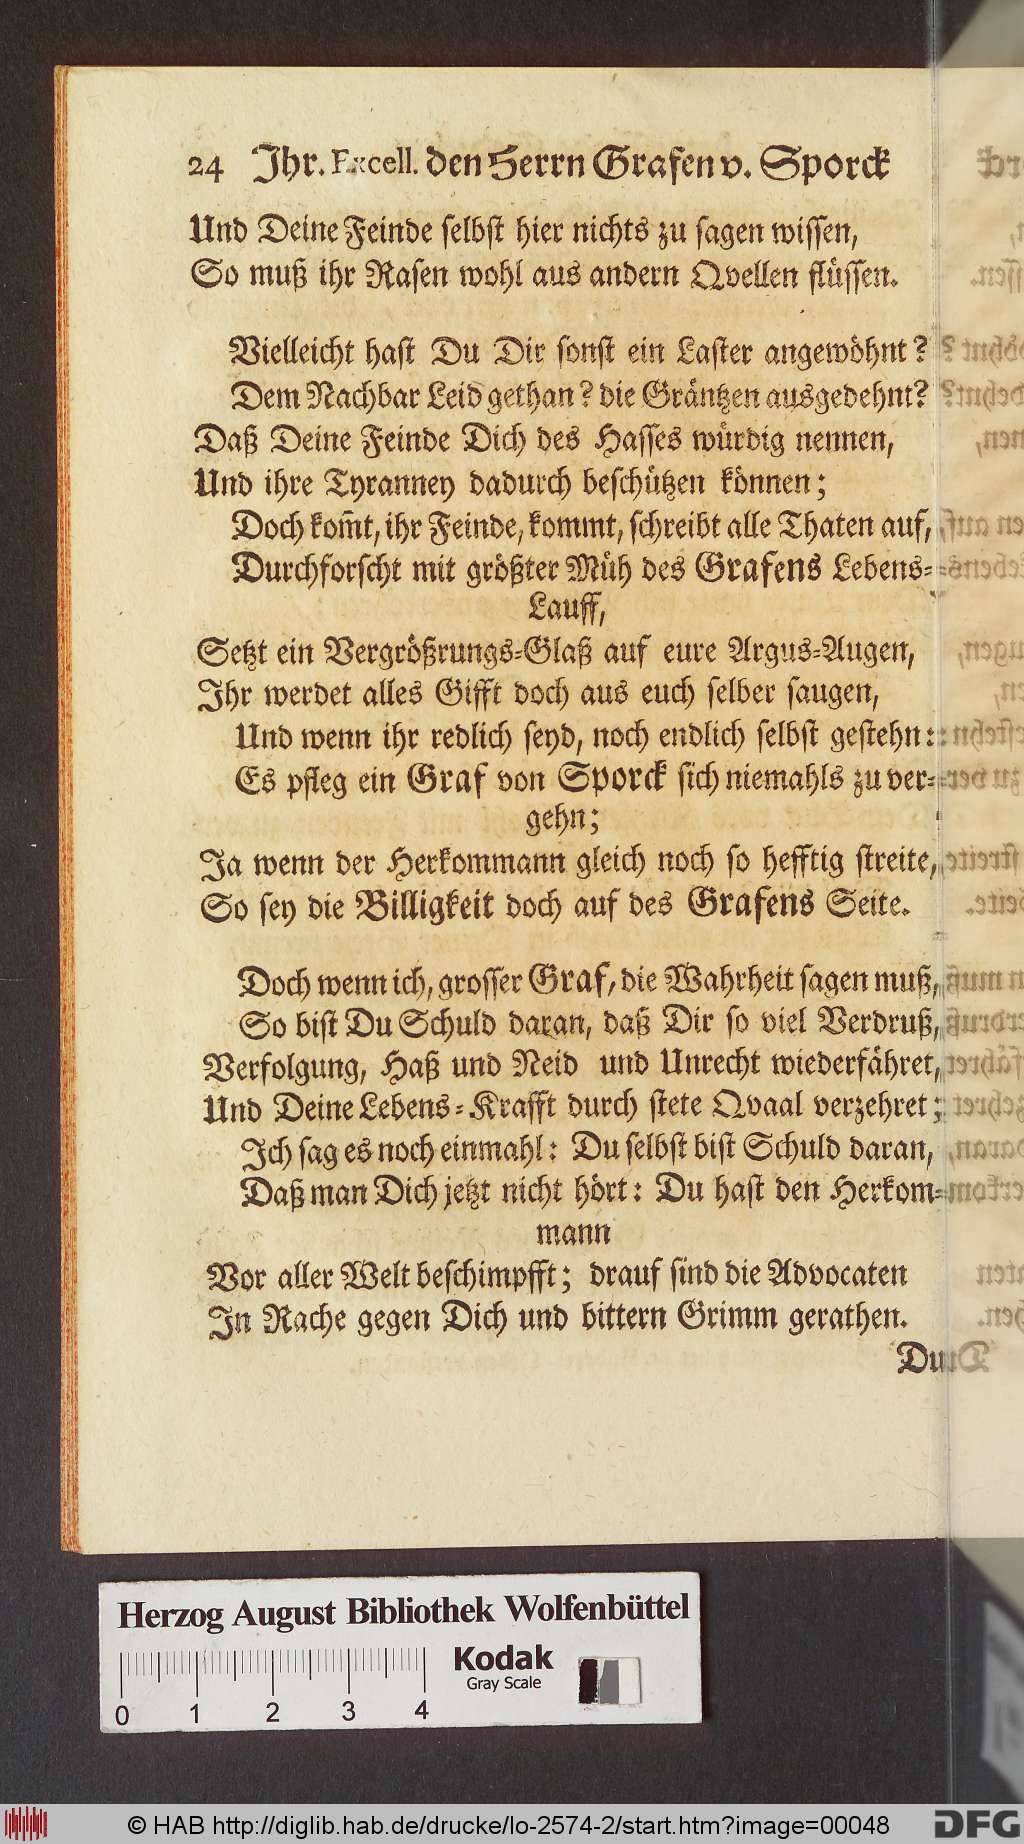 24 Ihr. Excell. den Herrn Grafen v. Sporck
Und Deine Feinde selbst hier nichts zu sagen wissen,
So muß ihr Rasen wohl aus andern Qvellen flüssen.
Vielleicht hast Du Dir sonst ein Laster angewöhnt?
Dem Nachbar Leid gethan? die Gräntzen ausgedehnt?
Daß Deine Feinde Dich des Hasses würdig nennen,
Und ihre Tyranney dadurch beschützen können;
Doch kom̃t, ihr Feinde, kommt, schreibt alle Thaten auf,
Durchforscht mit größter Müh des Grafens Lebens-
Lauff,
Setzt ein Vergrößrungs-Glaß auf eure Argus-Augen,
Ihr werdet alles Gifft doch aus euch selber saugen,
Und wenn ihr redlich seyd, noch endlich selbst gestehn:
Es pfleg ein Graf von Sporck sich niemahls zu ver-
gehn;
Ja wenn der Herkommann gleich noch so hefftig streite,
So sey die Billigkeit doch auf des Grafens Seite.
Doch wenn ich, grosser Graf, die Wahrheit sagen muß,
So bist Du Schuld daran, daß Dir so viel Verdruß,
Verfolgung, Haß und Neid und Unrecht wiederfähret,
Und Deine Lebens-Krafft durch stete Qvaal verzehret;
Ich sag es noch einmahl: Du selbst bist Schuld daran,
Daß man Dich jetzt nicht hört: Du hast den Herkom-
mann
Vor aller Welt beschimpfft; drauf sind die Advocaten
In Rache gegen Dich und bittern Grimm gerathen.
Du
Herzog August Bibliothek Wolfenbüttel
Kodak
Gray Scale
0 1 2 3 4
© HAB http://diglib.hab.de/drucke/lo-2574-2/start.htm?image=00048
DFG